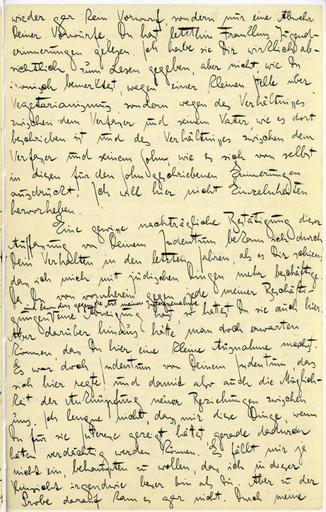 wieder gar kein Vorwurf, sondern nur eine Abwehr
Deiner Vorwürfe. Du hast letzthin Franklins Jugend-
erinnerungen gelesen. Ich habe sie Dir wirklich ab-
sichtlich zum Lesen gegeben aber nicht wie Du
ironisch bemerktest, wegen einer kleinen Stelle über
Vegetarianismus sondern wegen des Verhältnisses
zwischen dem Verfasser und seinem Vater wie es dort
beschrieben ist und des Verhältnisses zwischen dem
Verfasser und seinem Sohn, wie es sich von selbst
in diesen für den Sohn geschriebenen Erinnerungen
ausdrückt. Ich will hier nicht Einzelnheiten
hervorheben.
Eine gewisse nachträgliche Bestätigung dieser
Auffassung von Deinem Judentum bekam ich durch
Dein Verhalten in den letzten Jahren, als es Dir schien,
dass ich mich mit jüdischen Dingen mehr beschäftige.
Da Du von vornherein gegen jede meiner Beschäfti-
gungen und besonders gegen die Art meiner Interessennahme
eine Abneigung hast so hattest Du sie auch hier.
Aber darüber hinaus hätte man doch erwarten
können, dass Du hier eine kleine Ausnahme machst.
Es war doch Judentum von Deinem Judentum das
sich hier regte und damit also auch die Möglich-
keit der Anknüpfung neuer Beziehungen zwischen
uns. Ich leugne nicht, dass mir diese Dinge, wenn
Du für sie Interesse gezeigt hättest gerade dadurch
hätten verdächtig werden können. Es fällt mir ja
nicht ein, behaupten zu wollen, dass ich in dieser
Hinsicht irgendwie besser bin als Du. Aber zu der
Probe darauf kam es gar nicht. Durch meine